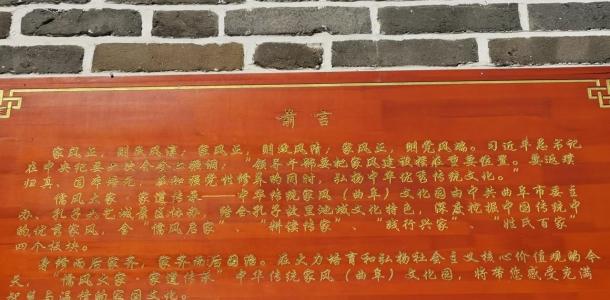 前言
家风正，则民风淳；家风正，则政风清；家风正，则党风端。习近平总书记
在中央纪委六次全会上强调，“领导干部要把家风建设摆在重要位置。要返璞
归真、固本培元，在加强党性修养的同时，弘扬中华优秀传统文化。”
儒风大家·家道传承——中华传统家风（曲阜）文化园由中共曲阜市委主
办、孔子六艺城景区协办，结合孔子故里地域文化特色，深度挖掘中国传统中
的优育家风，含“儒风启家”、“辩读传家”、“践行兴家”、“姓氏百家”
四个板块。
身修而后家齐，家齐而后国治。在大力培育和弘扬社会主义核心价值观的今
天，“儒风大家·家道传承”中华传统家风（曲阜）文化园，将带您感受充满
智慧与温情的家国文化。